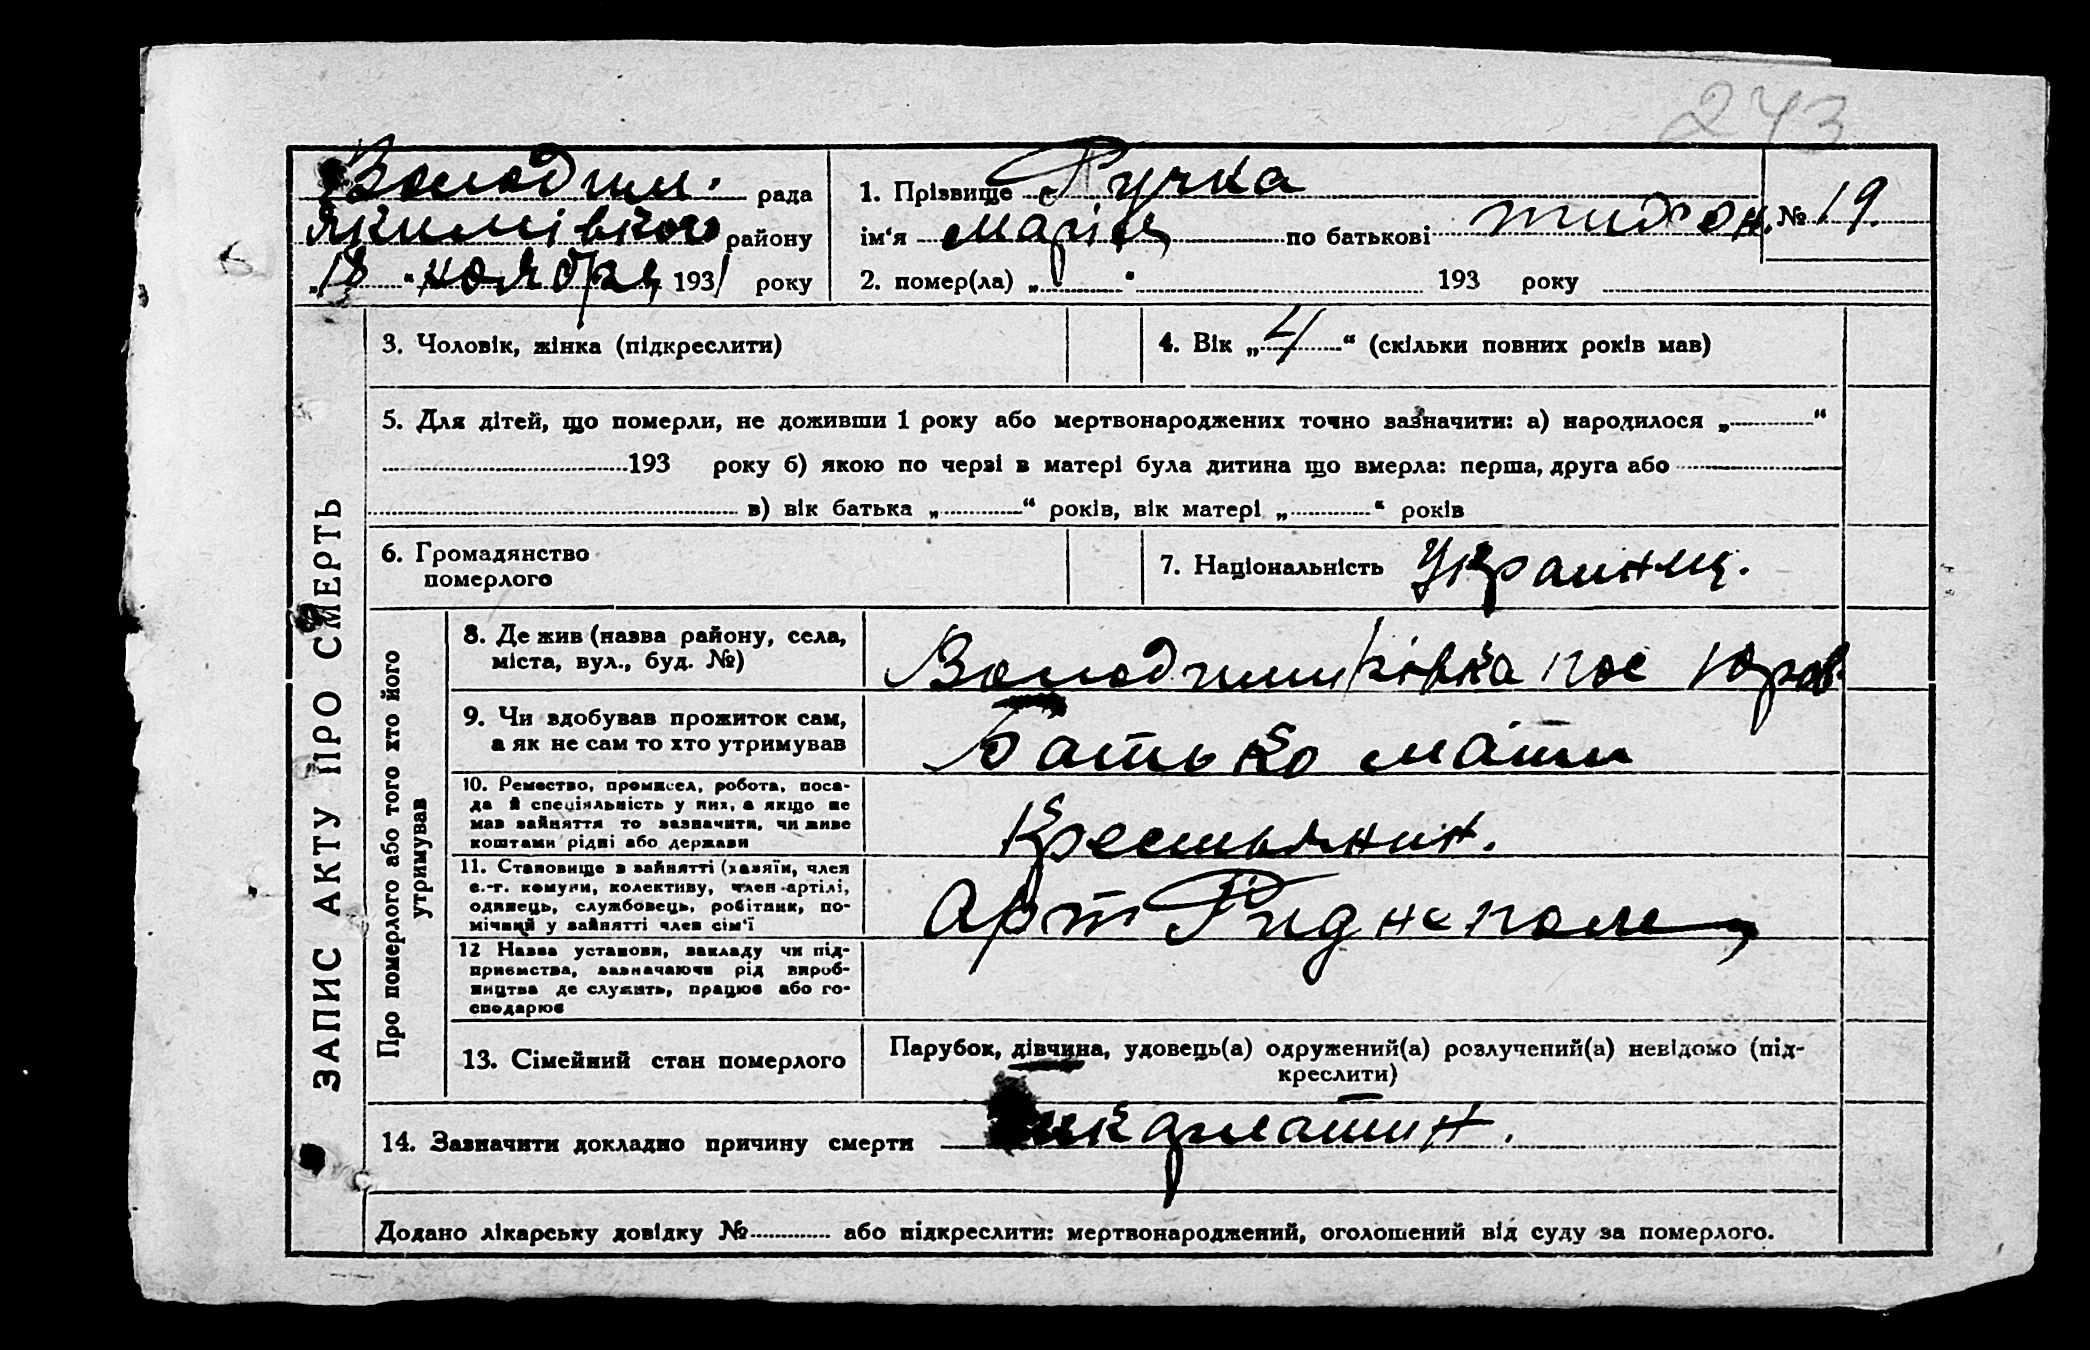 243
Володим. рада
Якимівского району
„18“ ноября 1931 року
1. Прізвище Ручка
ім‘я Марія по батькові Тидон. № 19.
2. помер(ла) „ “ 193 року
ЗАПИС АКТУ ПРО СМЕРТЬ
3. Чоловік, жінка (підкреслити)
4. Вік „4“ (скільки повних років мав)
5. Для дітей, що померли, не доживши 1 року або мертвонароджених точно зазначити: а) народилося „ “
193 року б) якою по черзі в матері була дитина що вмерла: перша, друга або
в) вік батька „ “ років, вік матері „ “ років
6. Громадянство
померлого
7. Національність Украинц.
Про померлого або того хто його
утримував
8. Де жив (назва району, села,
міста, вул., буд. №)
пос Юров
9. Чи здобував прожиток сам,
а як не сам то хто утримував
Батько мати
10. Ремество, промисел, робота, поса-
да й спеціяльність у них, а якщо не
мав зайняття то зазначити, чи живе
коштами рідні або держави
Крестьянин.
11. Становище в зайнятті (хазяїн, член
с.-г. комуни, колективу, член артілі,
одинець, службовець, робітник, по-
мічний у зайнятті член сім‘ї
Арт Ридне поле
12 Назва установи, закладу чи під-
приємства, зазначаючи рід вироб-
ництва де служить, працює або го-
сподарює
13. Сімейний стан померлого
Парубок, дівчина, удовець(а) одружений(а) розлучений(а) невідомо (під-
креслити)
14. Зазначити докладно причину смерти
Додано лікарську довідку № або підкреслити: мертвонароджений, оголошений від суду за померлого.